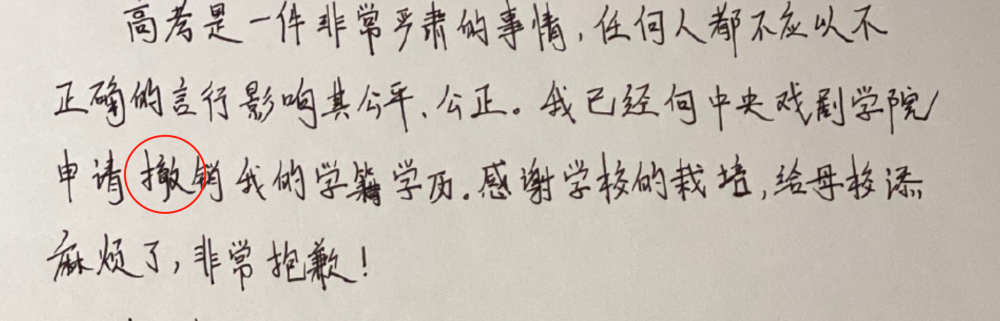 高考是一件非常严肃的事情,任何人都不应以不
正确的言行影响其公平、公正。我已经向中央戏剧学院
申请撤销我的学籍学历.感谢学校的栽培,给母校添
麻烦了,非常抱歉!